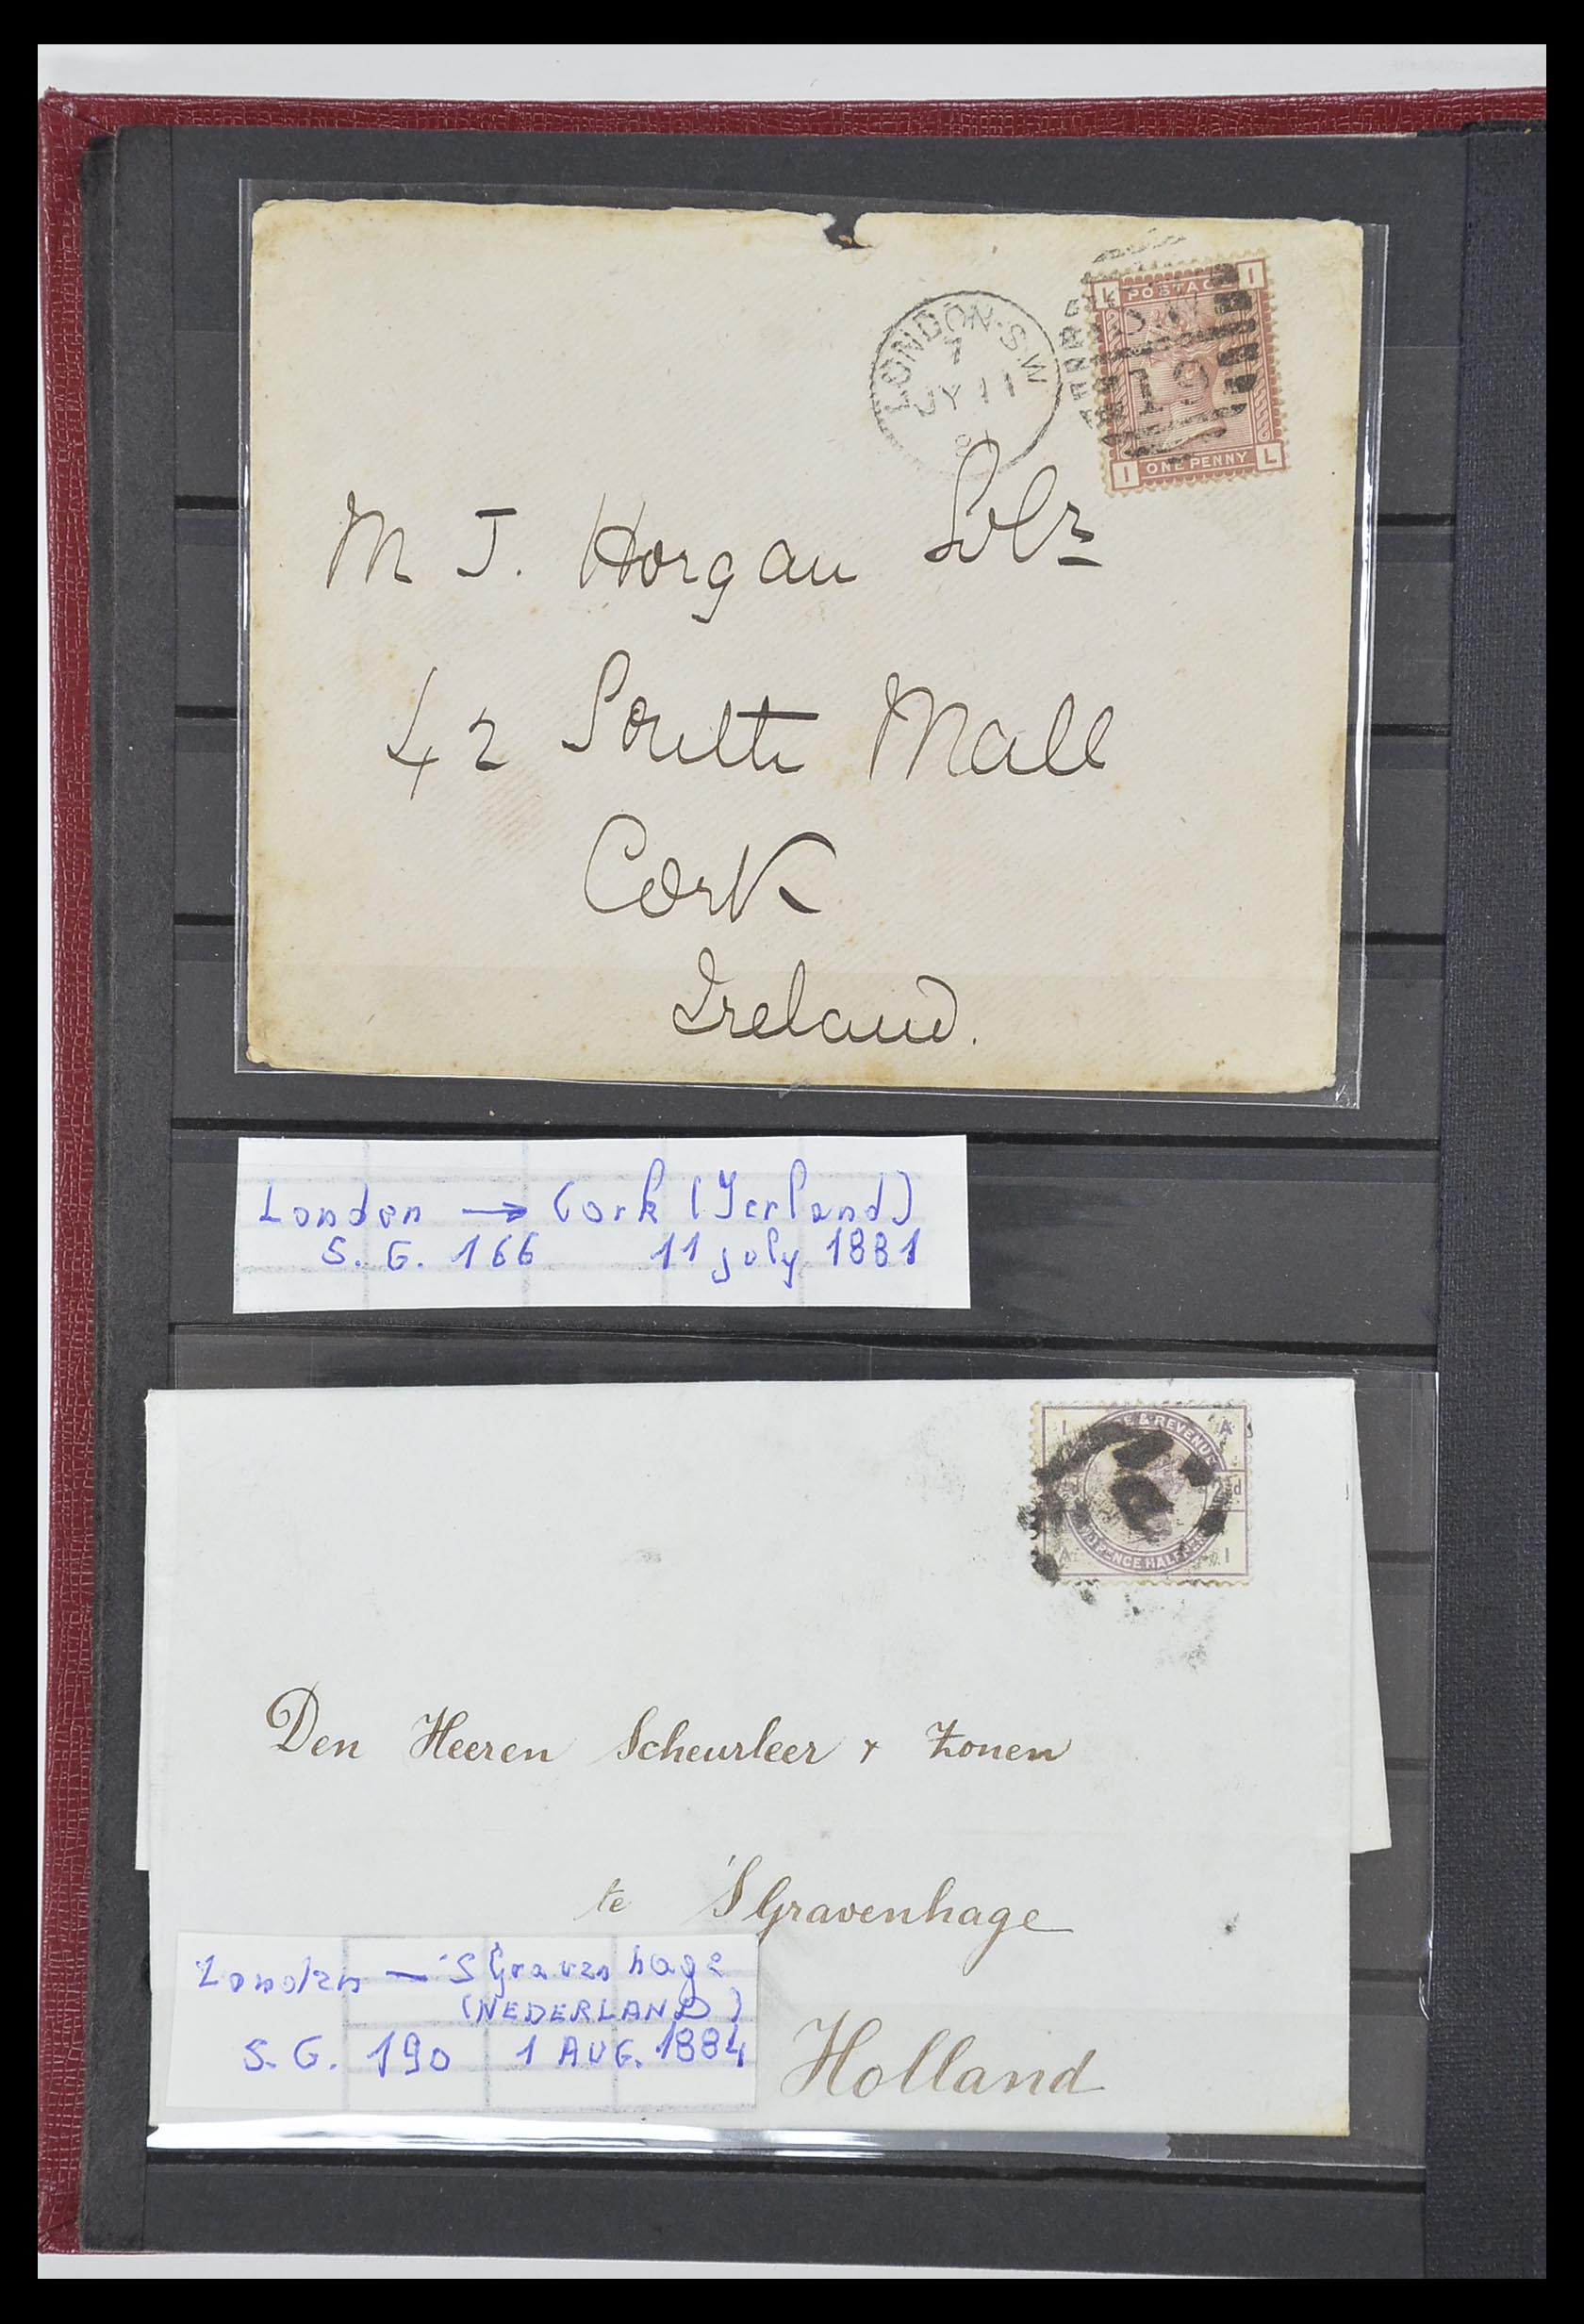 LONDON·S.W
7
JY 11
81
L POSTAGE I
S.W
19
I ONE PENNY L
M J. Horgan Solr
42 South Mall
Cork
Ireland.
Londen → Cork (Ierland)
S. G. 166 11 july 1881
I & REVENUE A
2½d
A PENCE HALF I
Den Heeren Scheurleer & Zonen
te 'SGravenhage
Holland
Londen — 'SGravenhage
(NEDERLAND)
S. G. 190 1 AUG. 1884